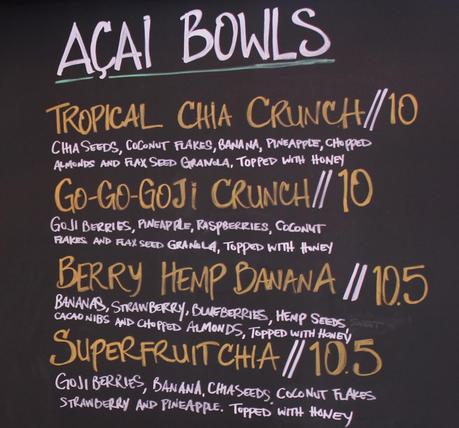 AÇAI BOWLS
TROPICAL CHIA CRUNCH//10
CHIA SEEDS, COCONUT FLAKES, BANANA, PINEAPPLE, CHOPPED
ALMONDS AND FLAX SEED GRANOLA, TOPPED WITH HONEY
GO-GO-GOJI CRUNCH//10
GOJI BERRIES, PINEAPPLE, RASPBERRIES, COCONUT
FLAKES AND FLAX SEED GRANOLA, TOPPED WITH HONEY
BERRY HEMP BANANA //10.5
BANANAS, STRAWBERRY, BLUEBERRIES, HEMP SEEDS,
CACAO NIBS AND CHOPPED ALMONDS, TOPPED WITH HONEY
SUPERFRUIT CHIA//10.5
GOJI BERRIES, BANANA, CHIA SEEDS, COCONUT FLAKES
STRAWBERRY AND PINEAPPLE. TOPPED WITH HONEY